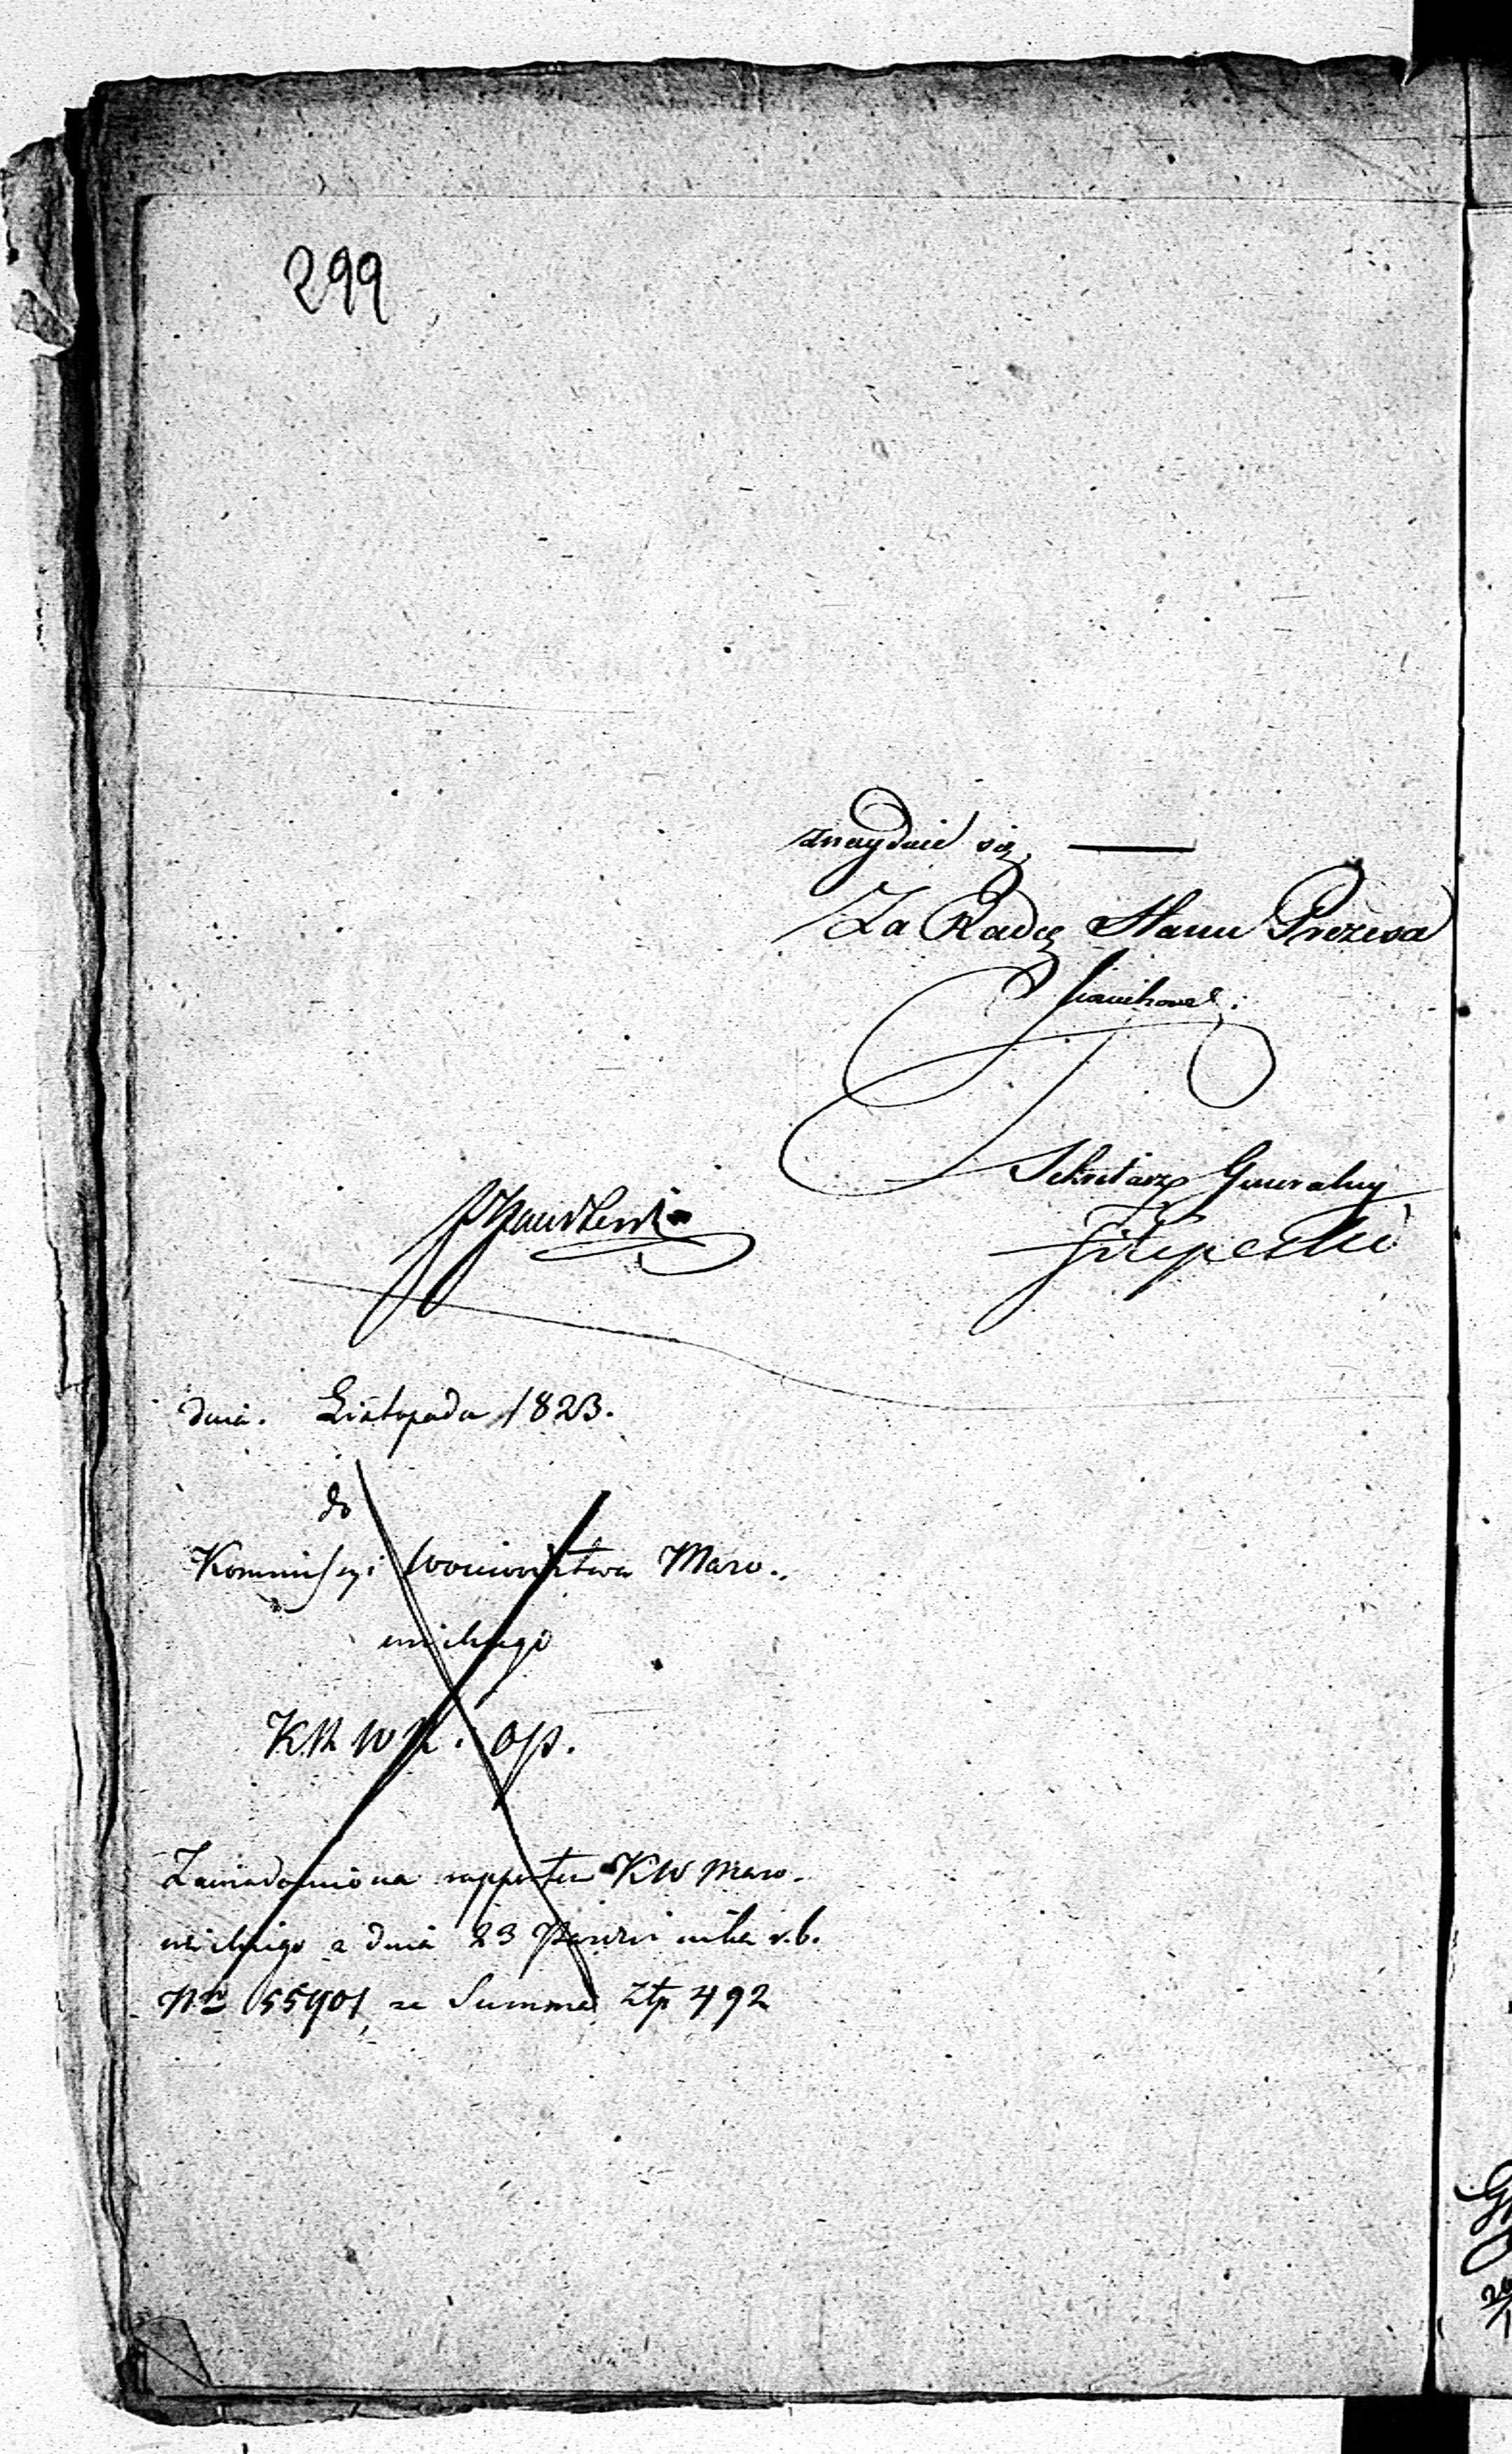 299
znaydzie się. —
Za Radcę Stanu Prezesa
Sekretarz Generalny
Filipecki
dnia. Listopada 1823.
do
Kommissyi Woiewództwa Mazo..
wieckiego
KRWR. OP.
Zawiadomiona rapportem KW Mazo.
wieckiego z dnia 23 Pazdziernika r.b.
Nro 55901, ze Summa Ztp 492